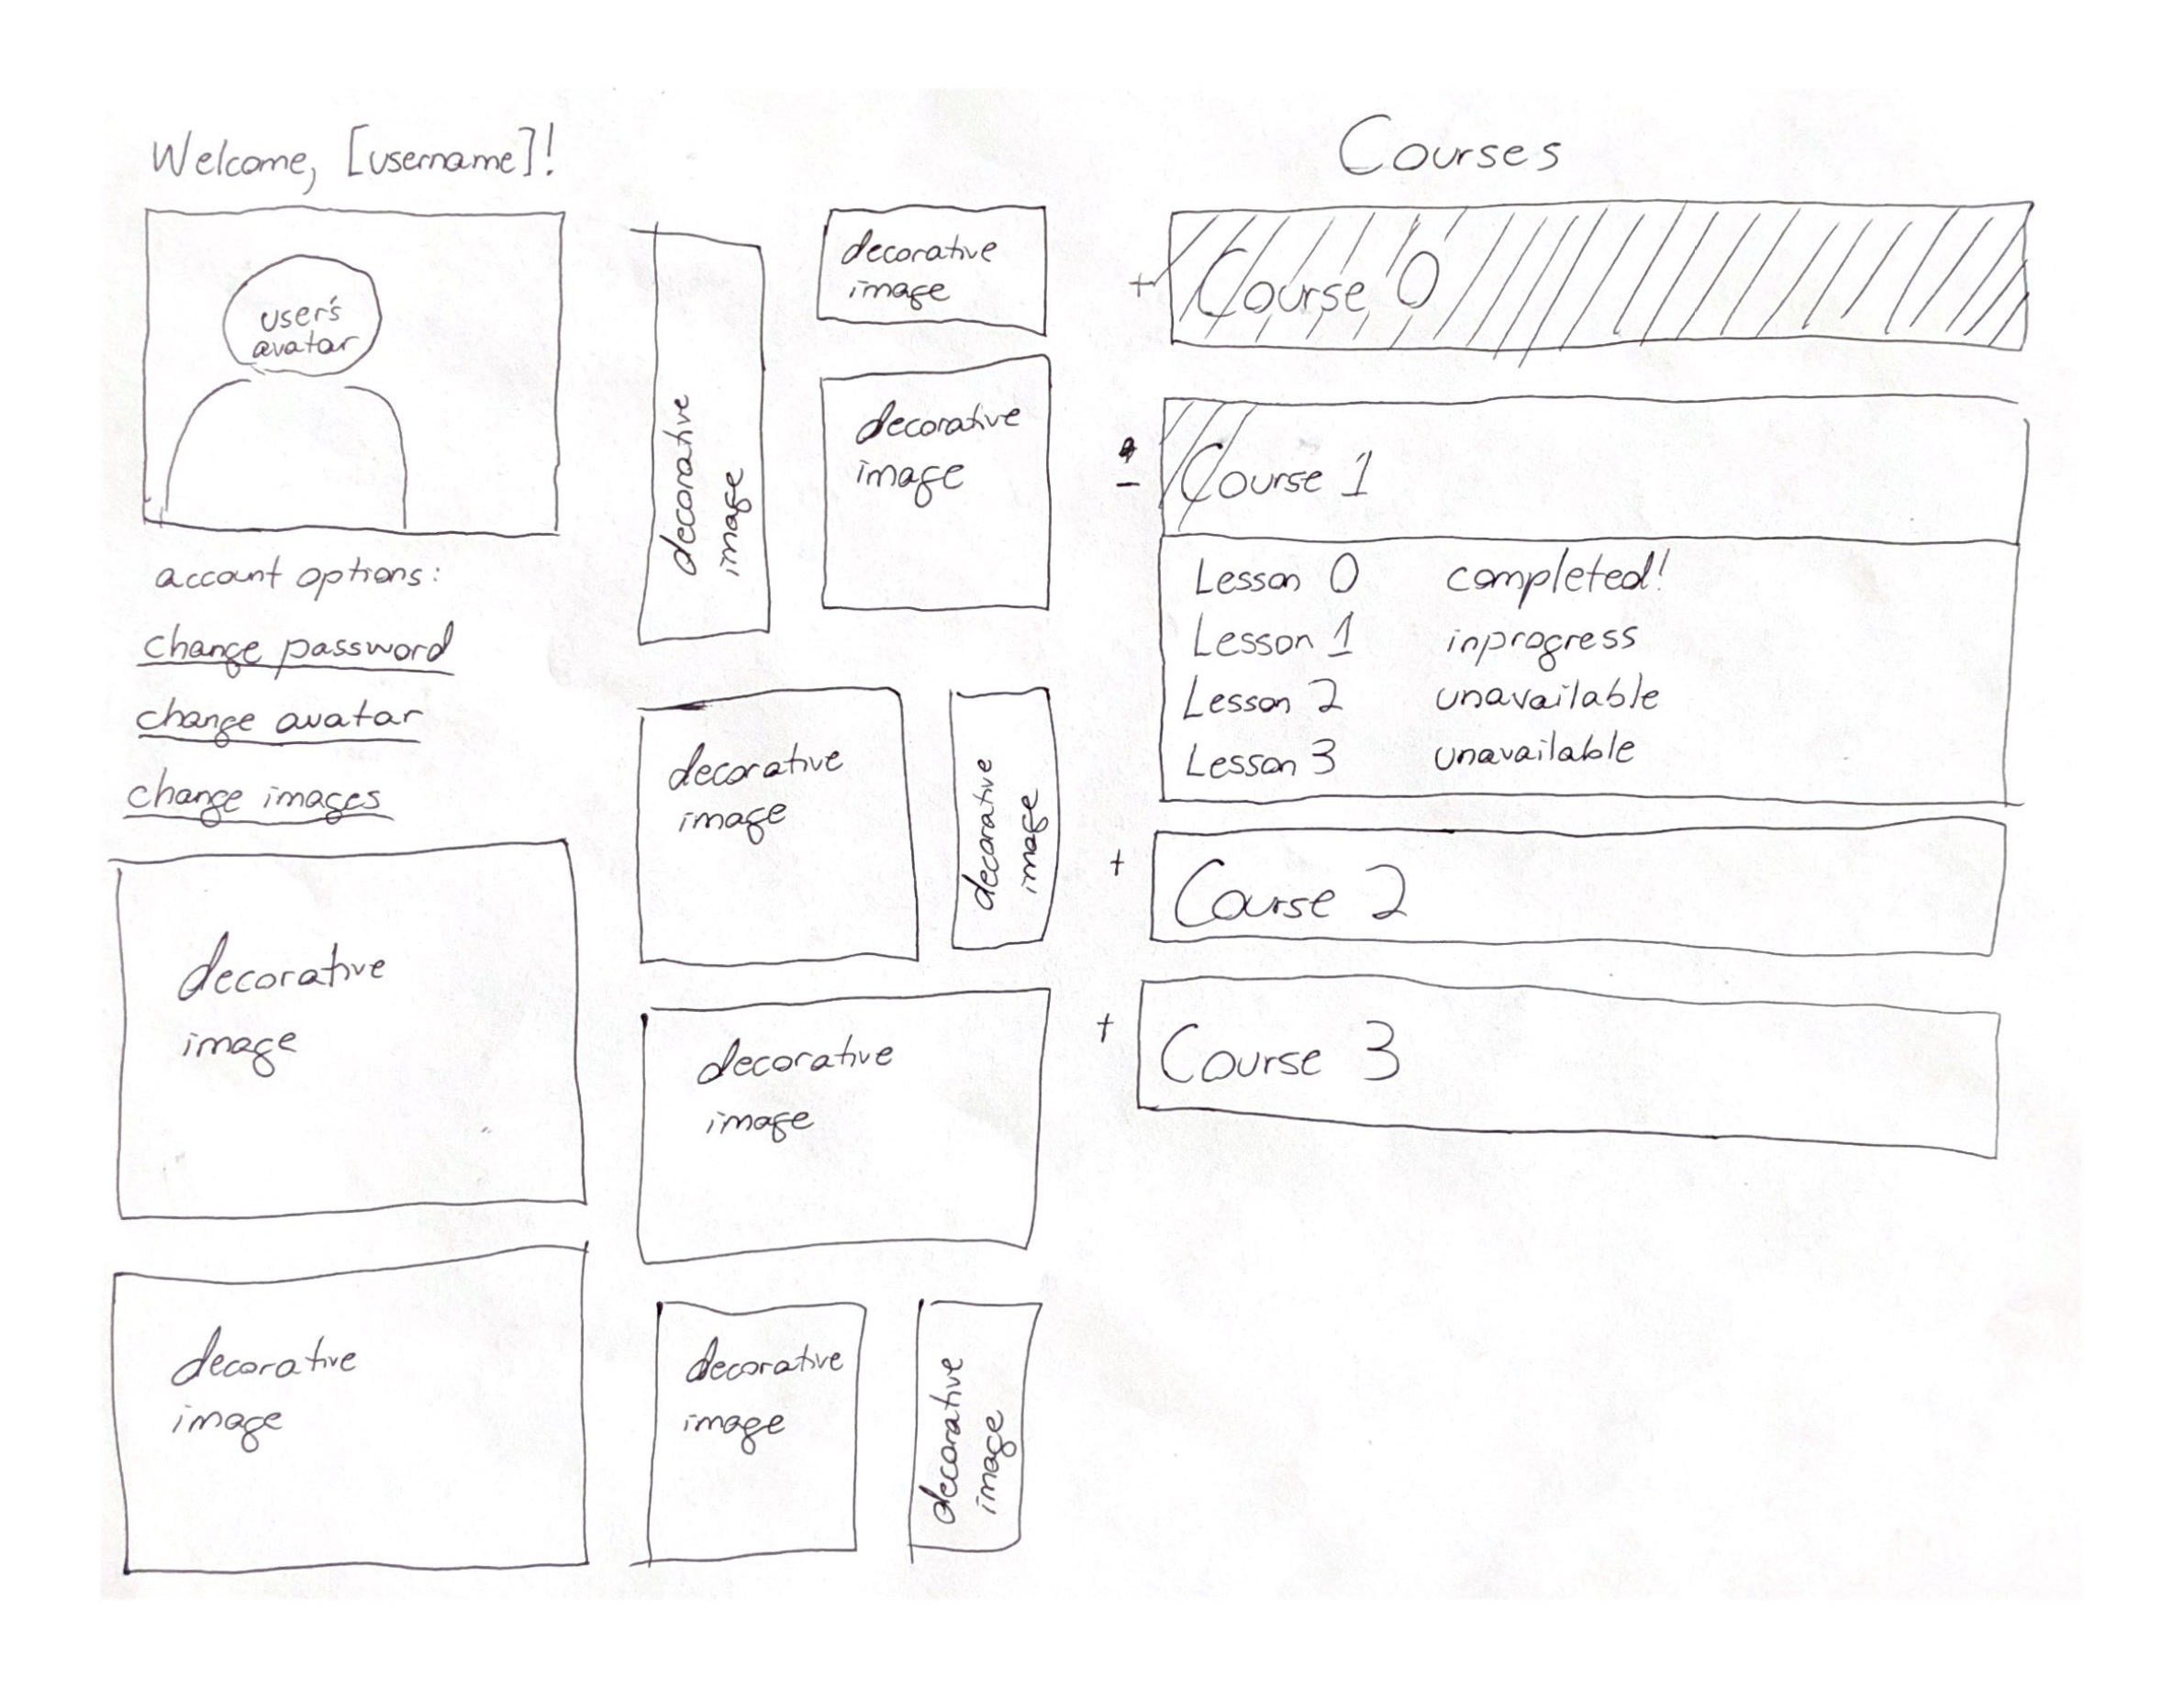 Welcome, [username]!
user's
avatar
account options:
change password
change avatar
change images
decorative
image
decorative
image
decorative
image
decorative
image
decorative
image
decorative
image
decorative
image
decorative
image
decorative
image
decorative
image
Courses
+ Course 0
- Course 1
Lesson 0 completed!
Lesson 1 inprogress
Lesson 2 unavailable
Lesson 3 unavailable
+ Course 2
+ Course 3